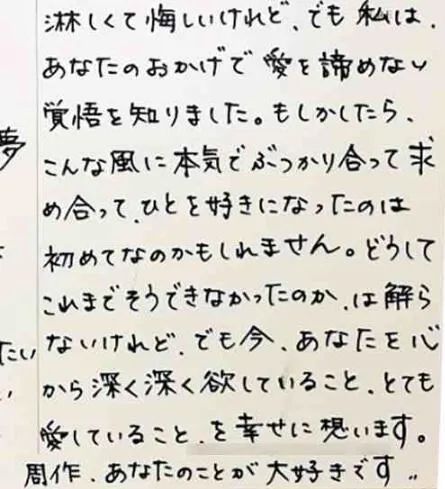 淋しくて悔しいけれど、でも私は、
あなたのおかげで愛を諦めない
覚悟を知りました。もしかしたら、
夢
こんな風に本気でぶつかり合って求
め合って、ひとを好きになったのは
初めてなのかもしれません。どうして
これまでそうできなかったのか、は解ら
たい
ないけれど、でも今、あなたを心
から深く深く欲していること、とても
愛していること、を幸せに想います。
周作、あなたのことが大好きです..